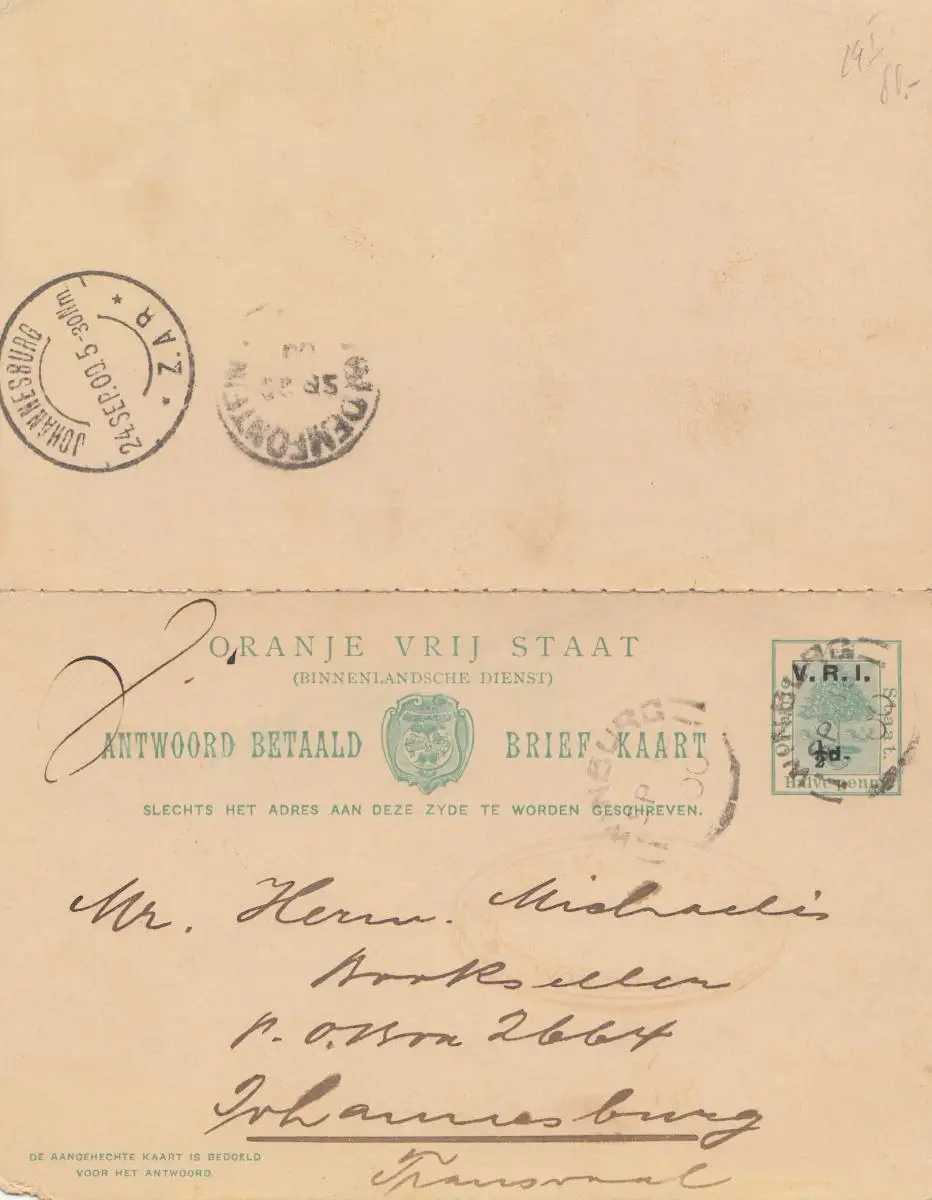 80.-
JOHANNESBURG
24 SEP.00.5-30Nm.
* Z.A.R *
DEMFONTEIN
SP 23
00
ORANJE VRIJ STAAT
(BINNENLANDSCHE DIENST)
ANTWOORD BETAALD BRIEF KAART
SLECHTS HET ADRES AAN DEZE ZYDE TE WORDEN GESCHREVEN.
V.R.I.
½d.
Oranje Staat.
Halve penny
SP
00
Mr. Herm. Michaelis
Bookseller
P.O. Box 2664
Johannesburg
Transvaal
DE AANGEHECHTE KAART IS BEDOELD
VOOR HET ANTWOORD.